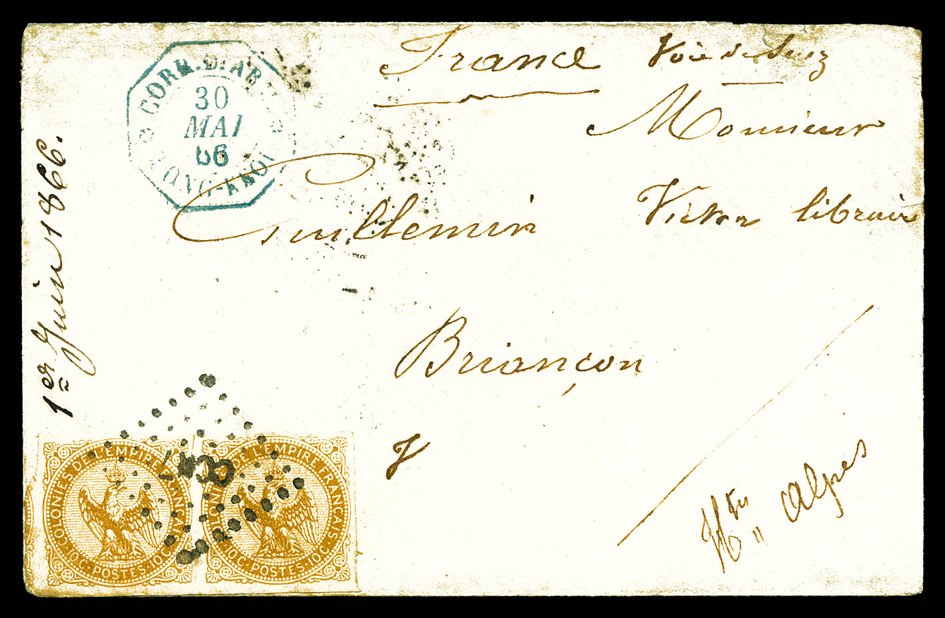 France Voie de Suez
Monsieur
Guillemin Victor libraire
Briançon
Htes Alpes
1er Juin 1866.
CORR. D. AR
30
MAI
66
HONG-KONG
COLONIES DE L'EMPIRE FRANÇAIS
10C. POSTES. 10C.
COLONIES DE L'EMPIRE FRANÇAIS
10C. POSTES. 10C.